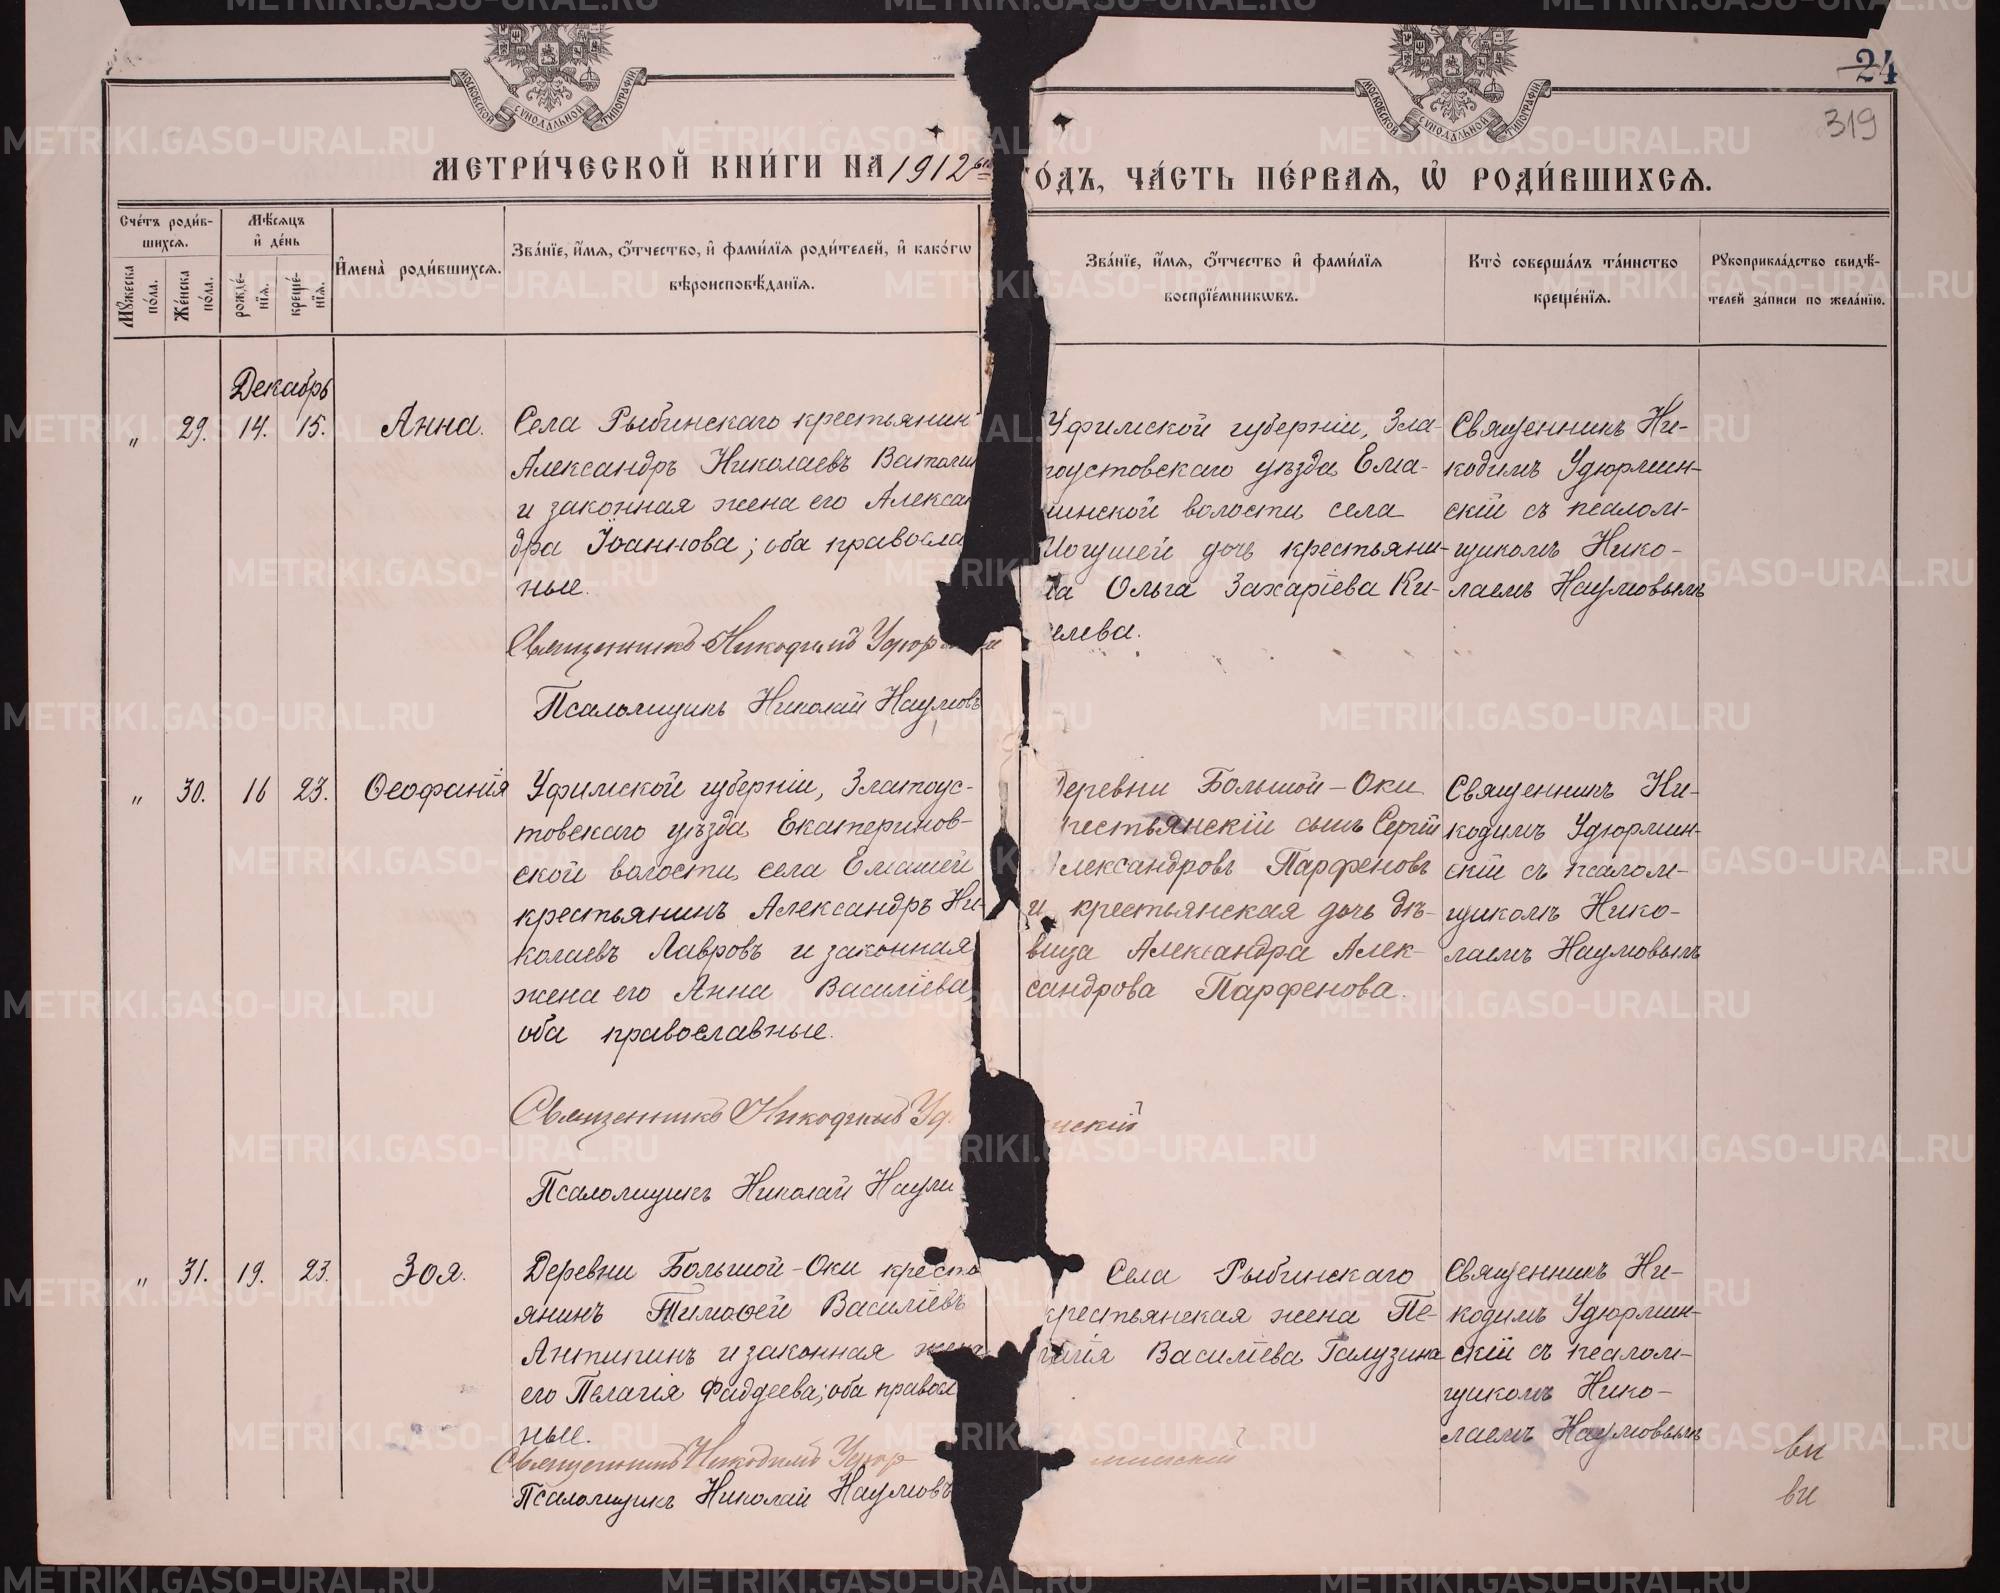 МОСКОВСКОЙ СѴНОДАЛЬНОЙ ТИПОГРАФІИ
МОСКОВСКОЙ СѴНОДАЛЬНОЙ ТИПОГРАФІИ
24
319
МЕТРИ́ЧЕСКОЙ КНИ́ГИ НА 1912
ГО́ДЪ, ЧА́СТЬ ПЕ́РВАѦ, Ѡ҆ РОДИ́ВШИХСѦ.
Сче́тъ роди́в-
шихсѧ.
Мѣ́сѧцъ
и҆ де́нь
И҆мена̀ роди́вшихсѧ.
Зва́нїе, и҆́мѧ, ѻ҆́тчество, и҆ фами́лїѧ роди́телей, и҆ како́гѡ
вѣроисповѣ́данїѧ.
Зва́нїе, и҆́мѧ, ѻ҆́тчество и҆ фами́лїѧ
воспрїе́мникѡвъ.
Кто̀ соверша́лъ та́инство
креще́нїѧ.
Рꙋкоприкла́дство свидѣ́-
телей за́писи по жела́нїю.
Мꙋ́жеска
по́ла.
Же́нска
по́ла.
рожде́-
нїѧ.
креще́-
нїѧ.
Декабрь
" 29. 14. 15. Анна.
Села Рыбинскаго крестьянин
Александръ Николаевъ Ватоли
и законная жена его Алексан
дра Іоаннова; оба правосла
ные.
Священникъ Никодимъ Удюр
Псаломщикъ Николай Наумовъ
Уфимской губерніи, Зла-
тоустовскаго уѣзда Ема-
шинской волости села
Шогушей дочь крестьяни-
на Ольга Захаріева Ки-
елева.
Священникъ Ни-
кодимъ Удюрмин-
скій съ псалом-
щикомъ Нико-
лаемъ Наумовымъ
" 30. 16 23. Ѳеофанія
Уфимской губерніи, Златоус-
товскаго уѣзда, Екатеринов-
ской волости, села Емашей
крестьянинъ Александръ Ни-
колаевъ Лавровъ и законная
жена его Анна Василіева
оба православные.
Священникъ Никодимъ Уд нскій
Псаломщикъ Николай Наум
Деревни Большой-Оки
крестьянскій сынъ Сергій
Александровъ Парфеновъ
и крестьянская дочь дѣ-
вица Александра Алек-
сандрова Парфенова.
Священникъ Ни-
кодимъ Удюрмин-
скій съ псалом-
щикомъ Нико-
лаемъ Наумовымъ
" 31. 19. 23. Зоя.
Деревни Большой-Оки кресть
янинъ Тимоѳей Василіевъ
Антипинъ и законная жена
его Пелагія Фаддеева; оба правосл
ные.
Священникъ Никодимъ Удюр минскій
Псаломщикъ Николай Наумовъ
Села Рыбинскаго
крестьянская жена Пе-
лагія Василіева Галузина
Священникъ Ни-
кодимъ Удюрмин-
скій съ псалом-
щикомъ Нико-
лаемъ Наумовымъ
METRIKI.GASO-URAL.RU